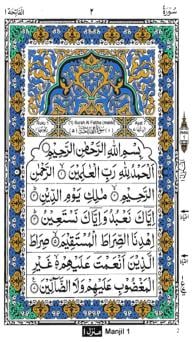 الفاتحة ١
٢
سورة
1 Surah Al Fatiha (makki)
بِسْمِ اللّٰهِ الرَّحْمٰنِ الرَّحِيْمِ
اَلْحَمْدُ لِلّٰهِ رَبِّ الْعٰلَمِيْنَ الرَّحْمٰنِ
الرَّحِيْمِ مٰلِكِ يَوْمِ الدِّيْنِ
اِيَّاكَ نَعْبُدُ وَاِيَّاكَ نَسْتَعِيْنُ
اِهْدِنَا الصِّرَاطَ الْمُسْتَقِيْمَ صِرَاطَ
الَّذِيْنَ اَنْعَمْتَ عَلَيْهِمْ غَيْرِ
الْمَغْضُوْبِ عَلَيْهِمْ وَلَا الضَّآلِّيْنَ
منزل ١ Manjil 1
2